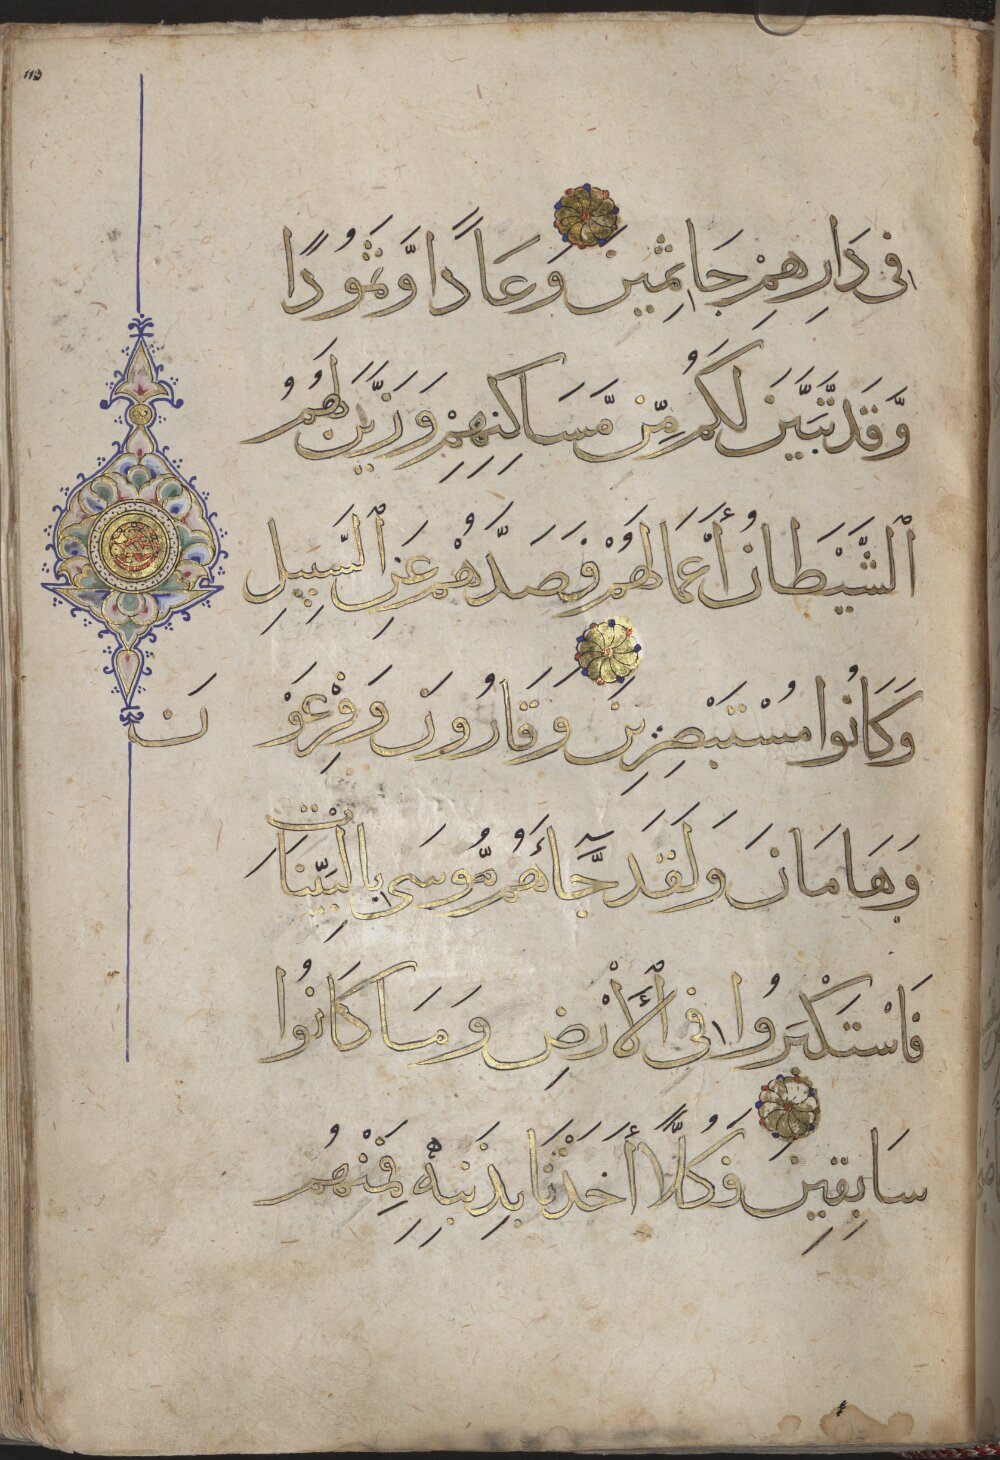 113
فِى دَارِهِمْ جَاثِمِينَ وَعَادًا وَّثَمُودًا
وَّقَد تَّبَيَّنَ لَكُمُ مِّن مَّسَاكِنِهِمْ وَزَيَّنَ لَهُمُ
ٱلشَّيْطَانُ أَعْمَالَهُمْ فَصَدَّهُمْ عَنِ ٱلسَّبِيلِ
وَكَانُوا مُسْتَبْصِرِينَ وَقَارُونَ وَفِرْعَوْنَ
وَهَامَانَ وَلَقَدْ جَّآءَهُمُ مُّوسَى بِالْبَيِّنَاتِ
فَاسْتَكْبَرُوا فِى ٱلْأَرْضِ وَمَا كَانُوا
سَابِقِينَ فَكُلًّا أَخَذْنَا بِذَنبِهِ فَمِنْهُمُ